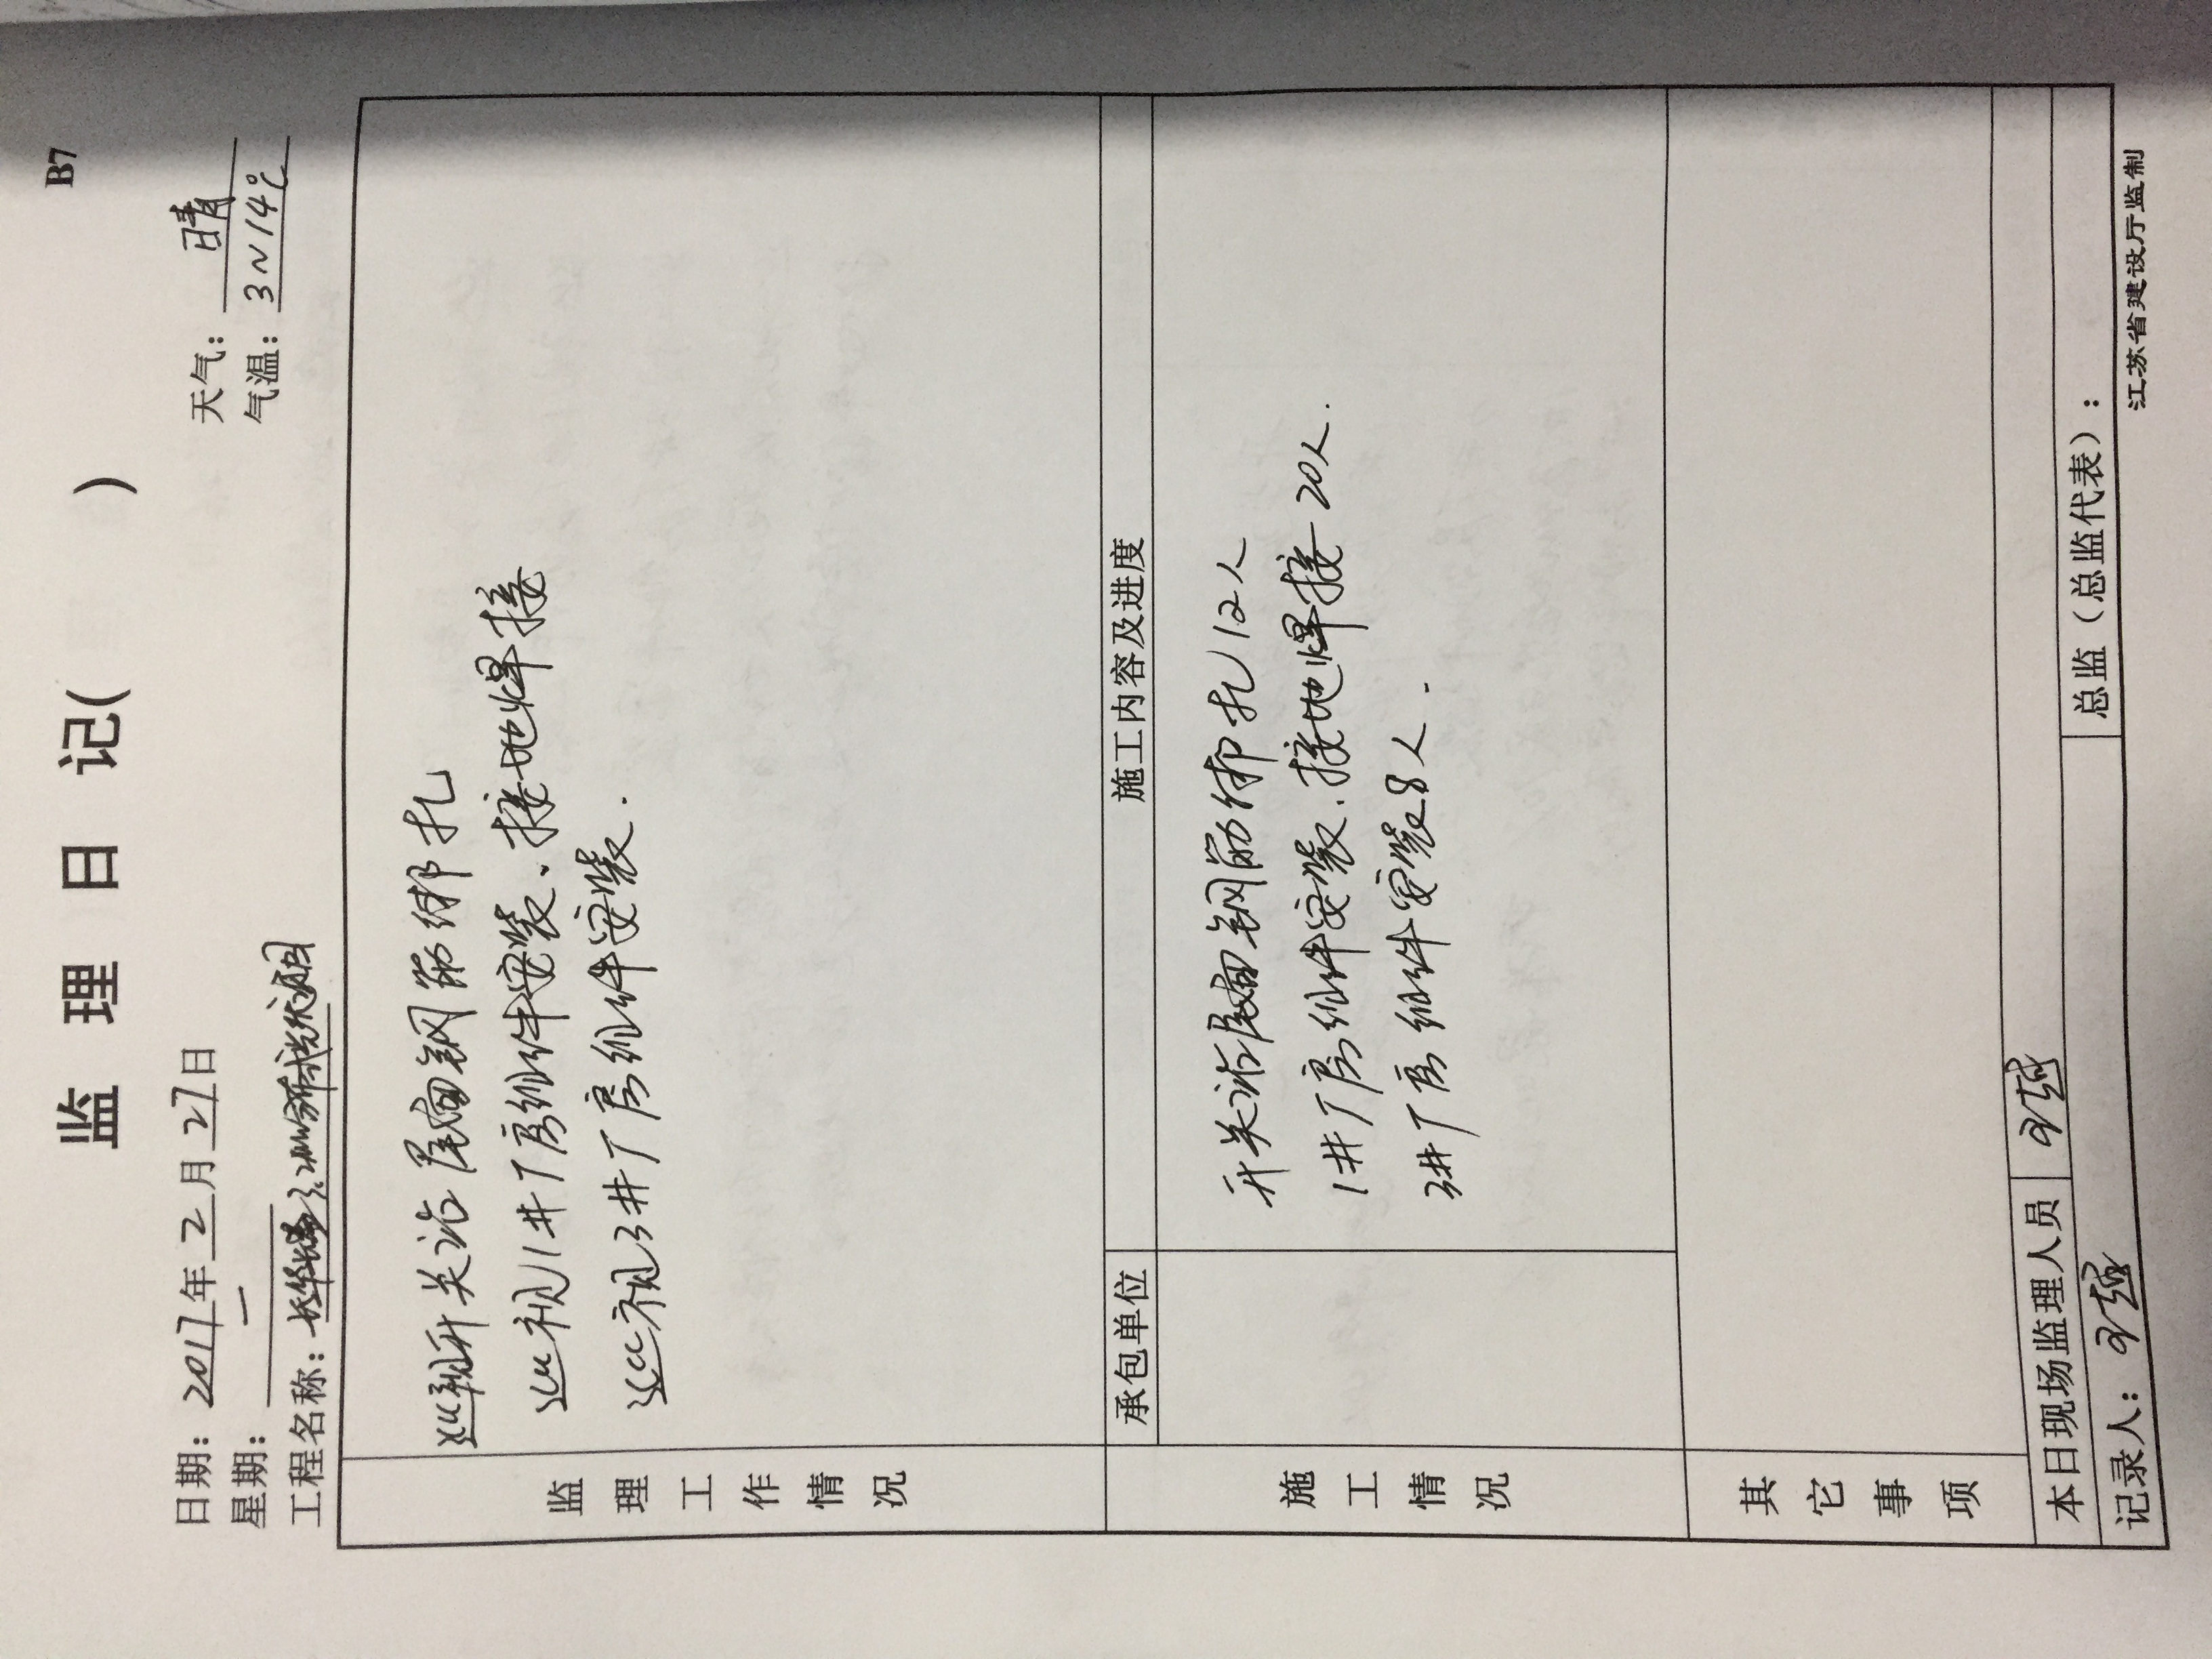 B7
监理日记( )
日期：2017年2月27日
天气：晴
星期：一
气温：3~14℃
工程名称：
监理工作情况
巡视开关站屋面钢筋绑扎
巡视1#厂房组件安装、接地焊接
巡视3#厂房组件安装.
施工情况
承包单位
施工内容及进度
开关站屋面钢筋绑扎12人
1#厂房组件安装、接地焊接20人.
3#厂房组件安装8人.
其它事项
本日现场监理人员
记录人：
总监（总监代表）：
江苏省建设厅监制